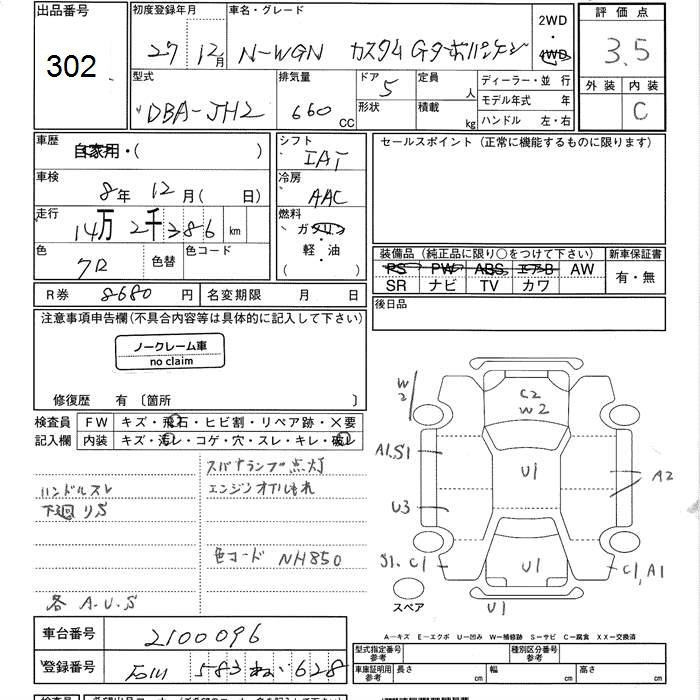 出品番号 初度登録年月日 車名・グレード 2WD 評価点
302 27 12月 N-WGN カスタム Gターボパッケージ 4WD 3.5
型式 排気量 ドア 定員 ディーラー・並 行 外装 内装
DBA-JH2 660 CC 5 形状 積載 人 kg モデル年式 年 C
ハンドル 左・右
車歴 自家用・( ) シフト IAT セールスポイント (正常に機能するものに限ります)
車検 8年 12月( 日) 冷房 AAC
走行 14万 2千386 km 燃料 ガソリン・軽・油 ( )
色 クロ 色替 色コード 装備品 (純正品に限り○をつけて下さい) 新車保証書
PS PW ABS エアB AW 有・無
SR ナビ TV カワ
R券 8680 円 名変期限 月 日 後日品
注意事項申告欄(不具合内容等は具体的に記入して下さい)
ノークレーム車
no claim
修復歴 有 〔箇所 〕
検査員 FW キズ・飛石・ヒビ割・リペア跡・×要
記入欄 内装 キズ・汚レ・コゲ・穴・スレ・キレ・破レ
スパナランプ点灯
ハンドルスレ エンジンオイルもれ
下廻りS
色コード NH850
各 A.U.S
W2
C2
W2
A1.S1
U1
A2
U3
S1.C1
U1
C1,A1
スペア
U1
車台番号 2100096
登録番号 583 628
A―キズ E―エクボ U―凹み W―補修跡 S―サビ C―腐食 XX―交換済
型式指定番号 参考 種別区分番号 参考
車庫証明用 参考 長さ cm 幅 cm 高さ cm